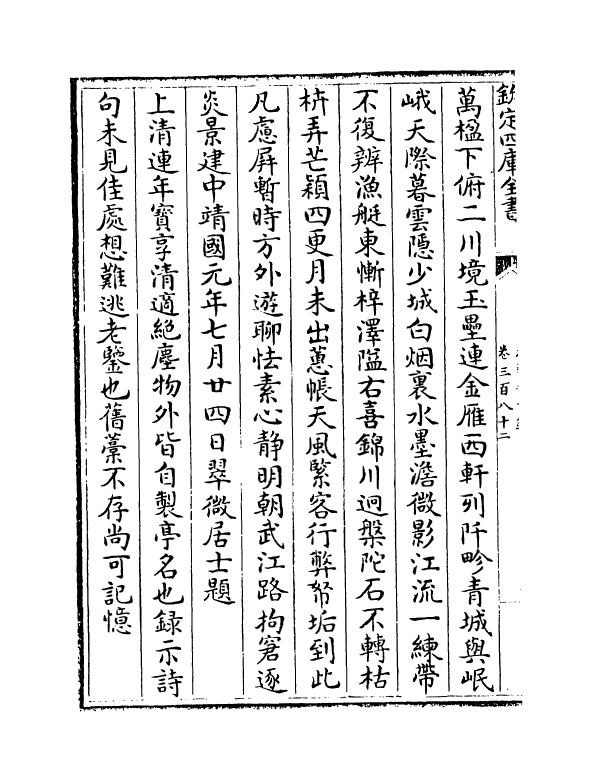 欽定四庫全書
卷三百八十二
萬楹下俯二川境玉壘連金雁西軒列阡畛青城與岷
峨天際暮雲隱少城白烟裏水墨澹微影江流一練帶
不復辨漁艇東慚梓澤隘右喜錦川迥槃陀石不轉枯
枿弄芒穎四更月未出蕙帳天風緊客行弊帑垢到此
凡慮屏暫時方外遊聊怯素心静明朝武江路拘窘逐
炎景建中靖國元年七月廿四日翠微居士題
上清連年寳享清適絶塵物外皆自製亭名也録示詩
句未見佳處想難逃老鑒也舊藁不存尚可記憶